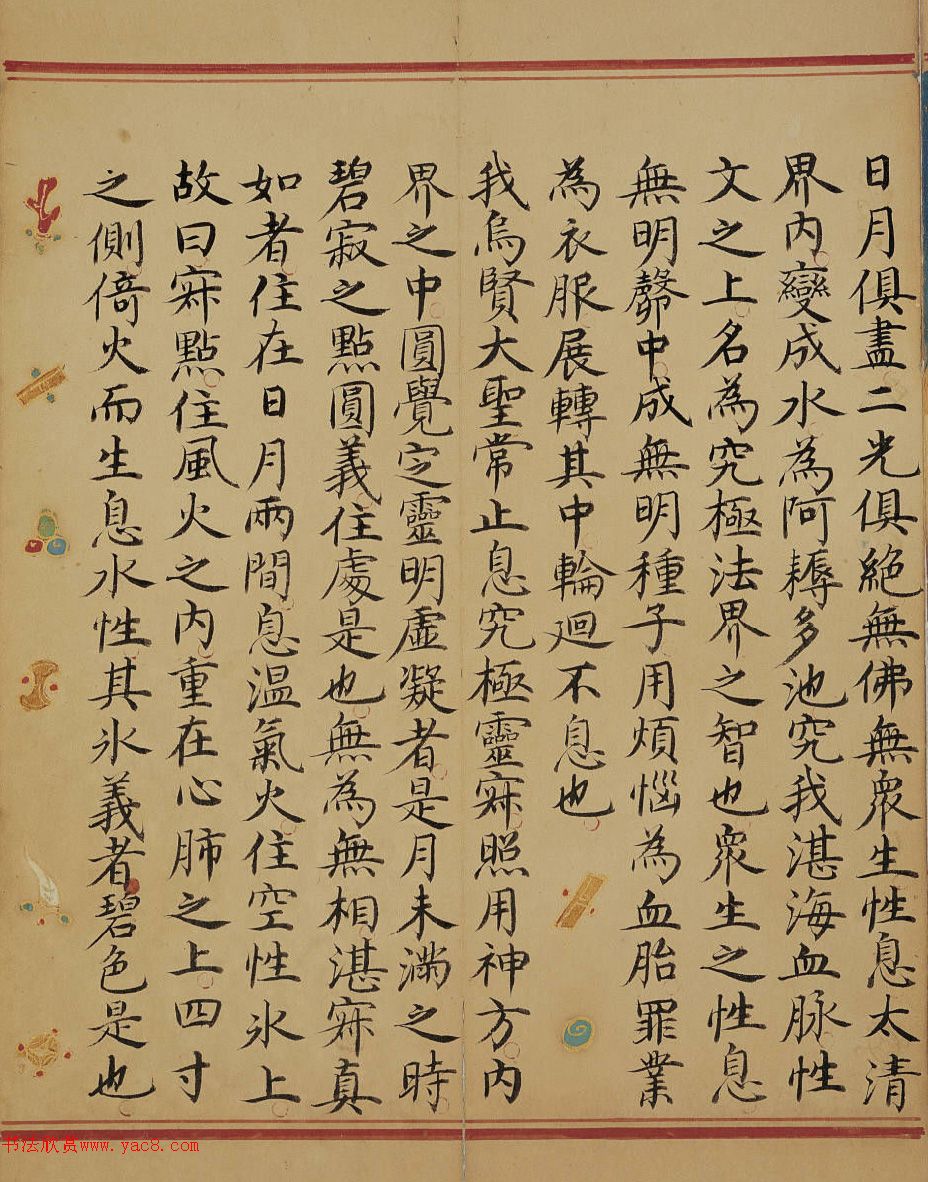 日月俱盡二光俱絕無佛無衆生性息太清
界內變成水為阿耨多池究我湛海血脉性
文之上名為究極法界之智也衆生之性息
無明鄣中成無明種子用煩惱為血胎罪業
為衣服展轉其中輪迴不息也
我烏賢大聖常止息究極靈寂照用神方內
界之中圓覺之靈明虛凝者是月未滿之時
碧寂之點圓義住處是也無為無相湛寂真
如者住在日月兩間息温氣火住空性氷上
故曰寂點住風火之內重在心肺之上四寸
之側倚火而生息水性其氷義者碧色是也
书法欣赏www.yac8.com